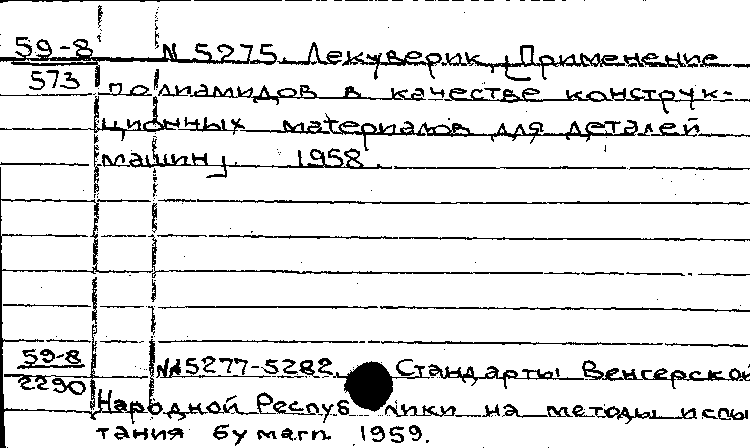 59-8 N 5275. Лекуверик, [Применение
573 полиамидов в качестве конструк-
ционных материалов для деталей
машин]. 1958.
59-8 №№5277-5282. Стандарты Венгерской
2290 Народной Республики на методы испы
тания бумаги 1959.